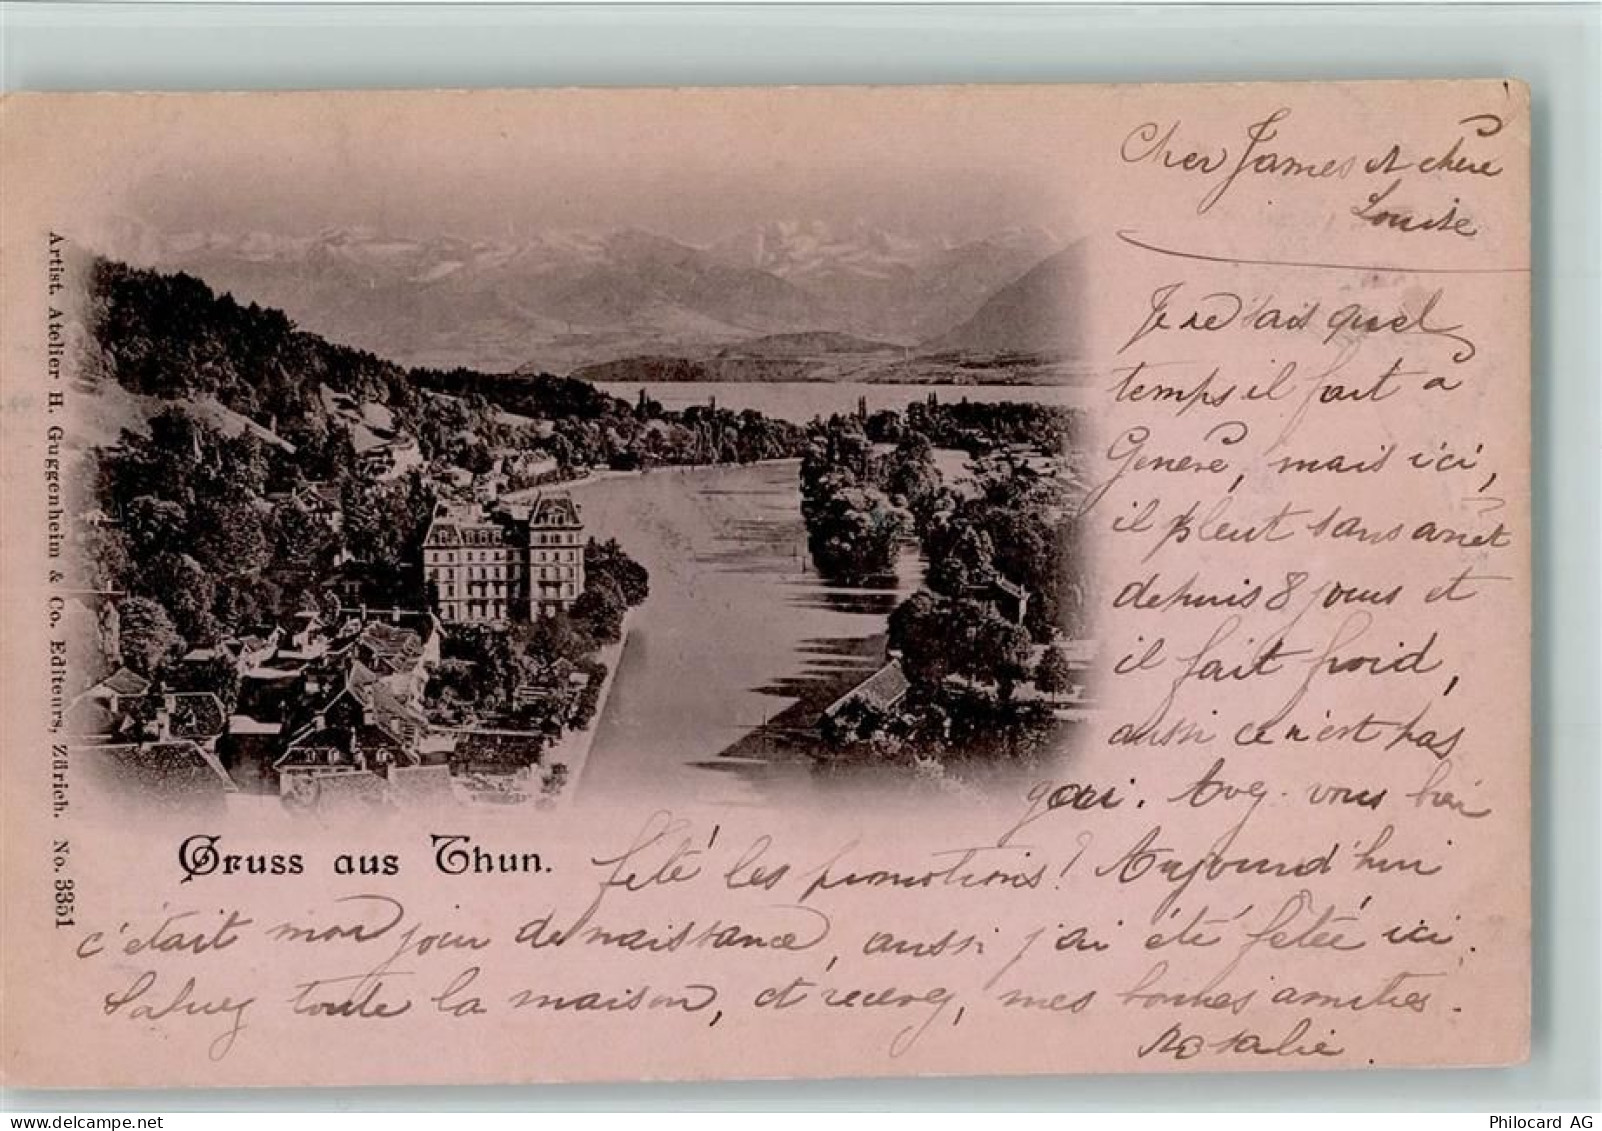 Cher James et chère
Louise
Je ne sais quel
temps il fait à
Genève, mais ici,
il pleut sans arrêt
depuis 8 jours et
il fait froid,
aussi ce n'est pas
gai. Avez-vous bien
fêté les promotions? Aujourd'hui
c'était mon jour de naissance, aussi j'ai été fêtée ici.
Saluez toute la maison, et recevez, mes bonnes amitiés.
Rosalie.
Gruss aus Thun.
Artist. Atelier H. Guggenheim & Co. Editeurs, Zürich. No. 3351
Philocard AG